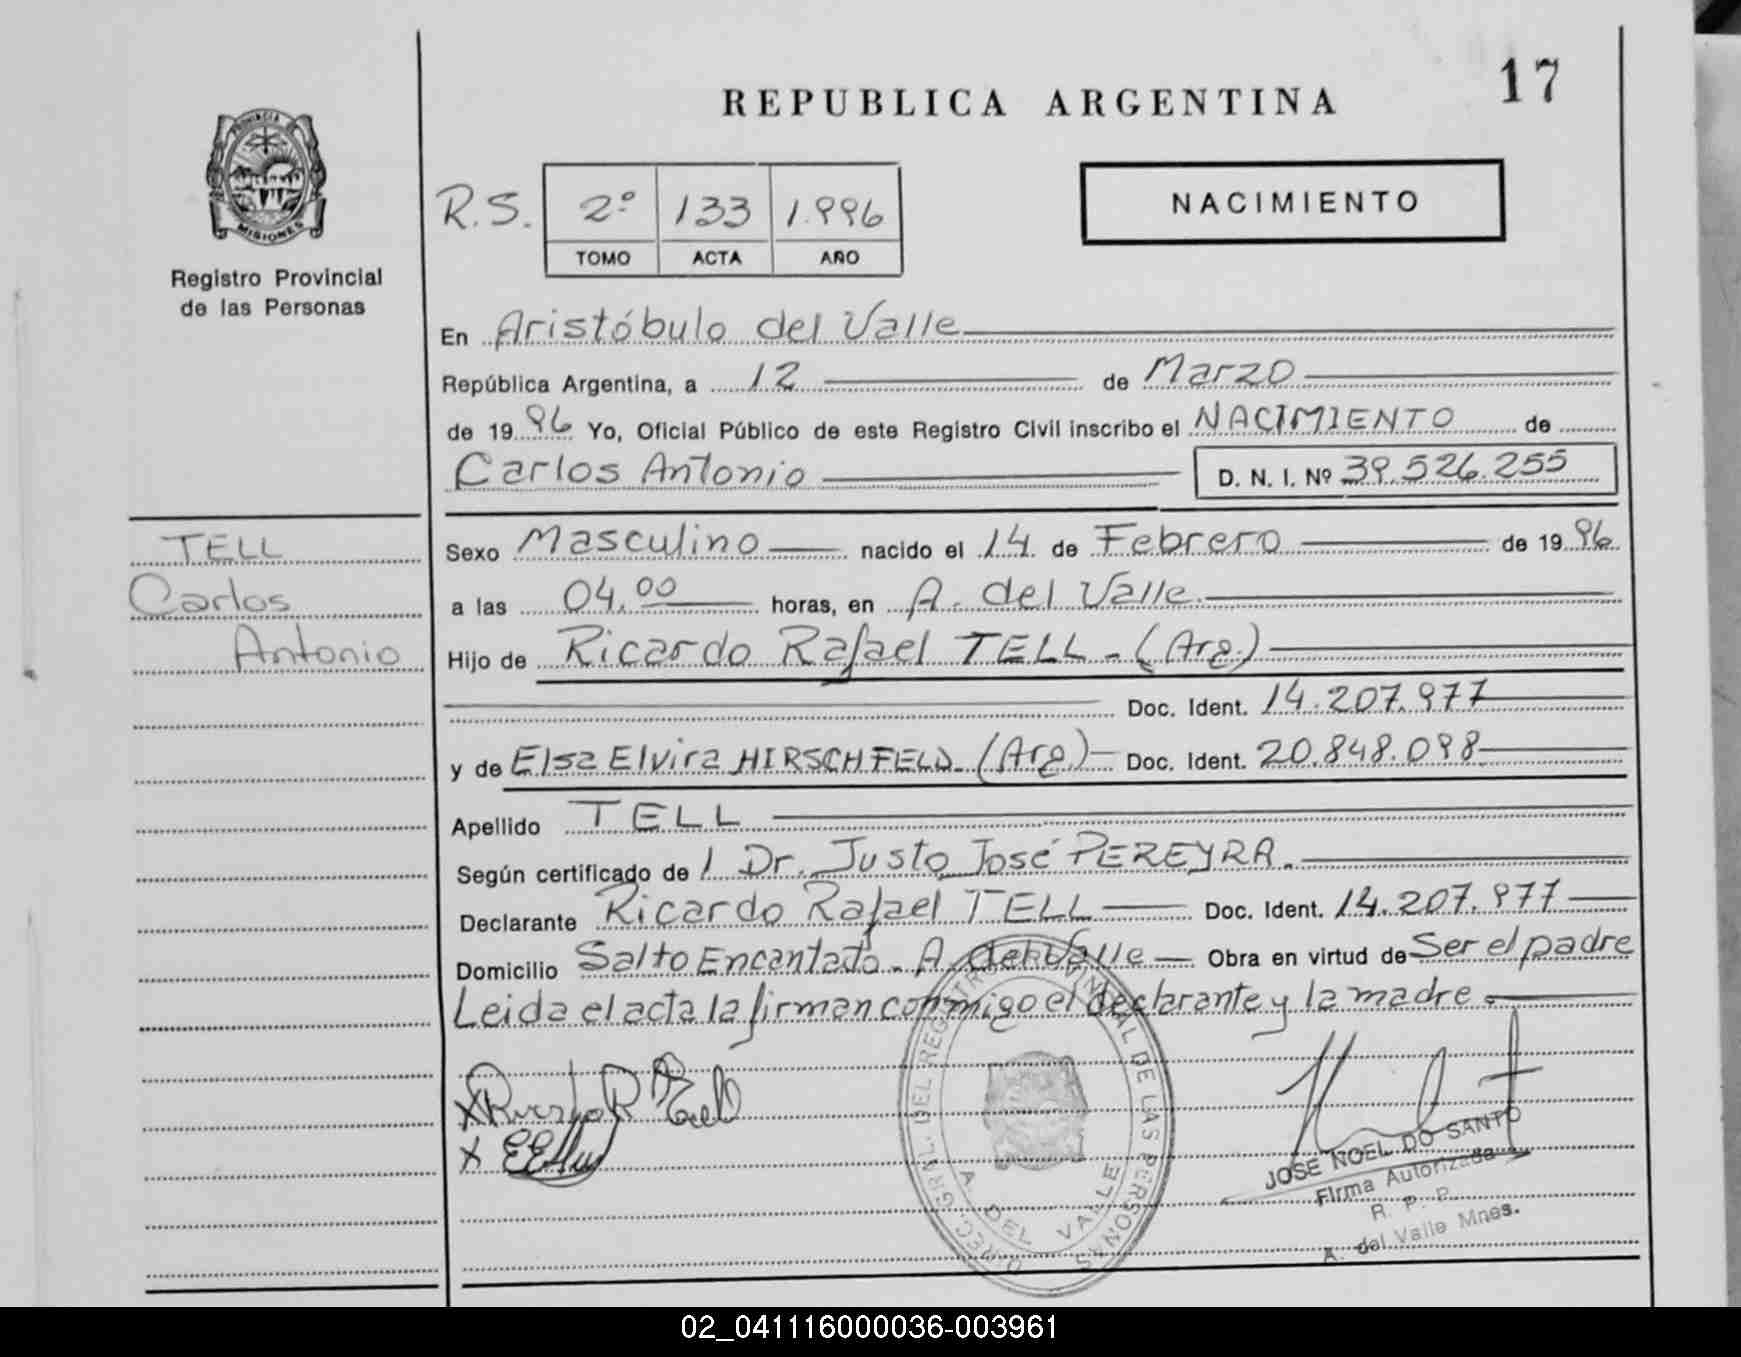 17
REPUBLICA ARGENTINA
PROVINCIA DE
MISIONES
Registro Provincial
de las Personas
R.S. 2º 133 1.996
TOMO ACTA AÑO
NACIMIENTO
En Aristóbulo del Valle
República Argentina, a 12 de Marzo
de 1996 Yo, Oficial Público de este Registro Civil inscribo el NACIMIENTO de
Carlos Antonio D. N. I. Nº 39.526.255
TELL
Carlos
Antonio
Sexo Masculino nacido el 14 de Febrero de 1996
a las 04.00 horas, en A. del Valle.
Hijo de Ricardo Rafael TELL - (Arg.)
Doc. Ident. 14.207.977
y de Elsa Elvira HIRSCHFELD (Arg.) Doc. Ident. 20.848.098
Apellido TELL
Según certificado de / Dr. Justo José PEREYRA.
Declarante Ricardo Rafael TELL Doc. Ident. 14.207.977
Domicilio Salto Encantado - A. del Valle Obra en virtud de Ser el padre
Leida el acta la firman conmigo el declarante y la madre.
X Ricardo R Tell
X
DIREC. GRAL. DEL REGISTRO PROVINCIAL DE LAS PERSONAS
A. DEL VALLE
JOSE NOEL DO SANTO
Firma Autorizada
R. P. P.
A. del Valle Mnes.
02_041116000036-003961